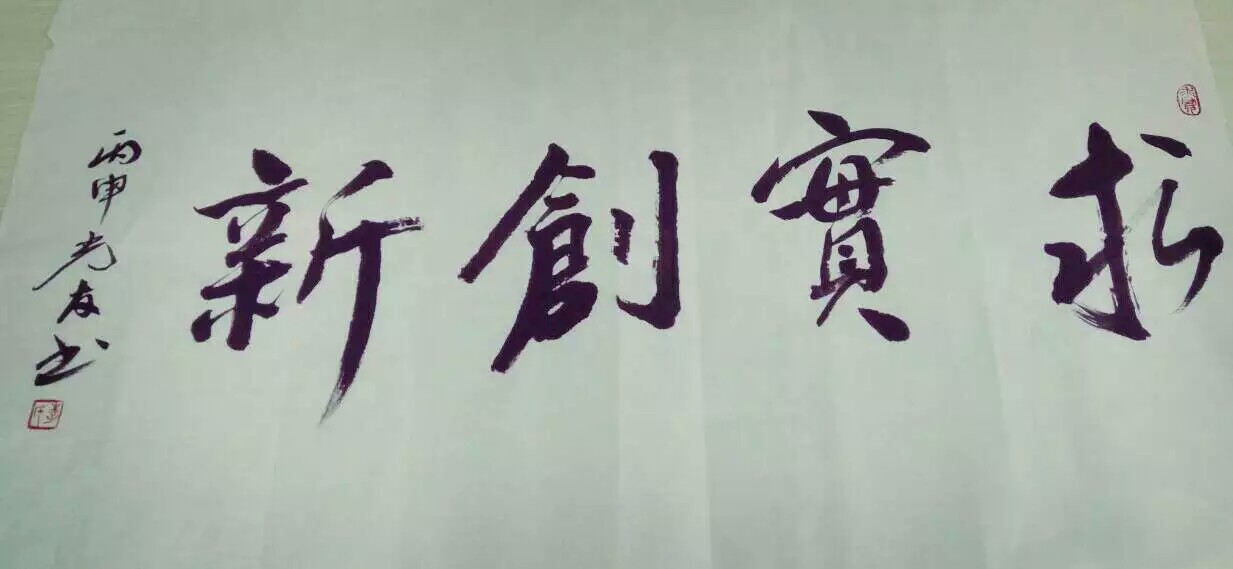 求實創新
丙申 光友书